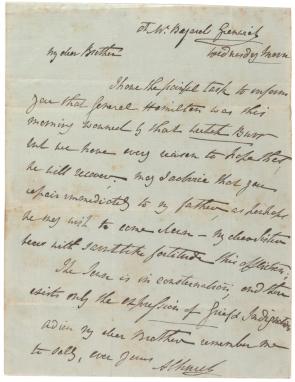 At Mr Bayards Greenwich
Wednesday Morn
My dear Brother
I have the painful task to inform
you that General Hamilton was this
morning wounded by that wretch Burr
but we have every reason to hope that
he will recover. May I advise that you
repair immediately to my father, as perhaps
he may wish to come down – My dear Sister
bears with saintlike fortitude this affliction.
The Town is in consternation, and there
exists only the expression of Grief & Indignation.
adieu my dear Brother remember me
to Sally, ever yours
A Church